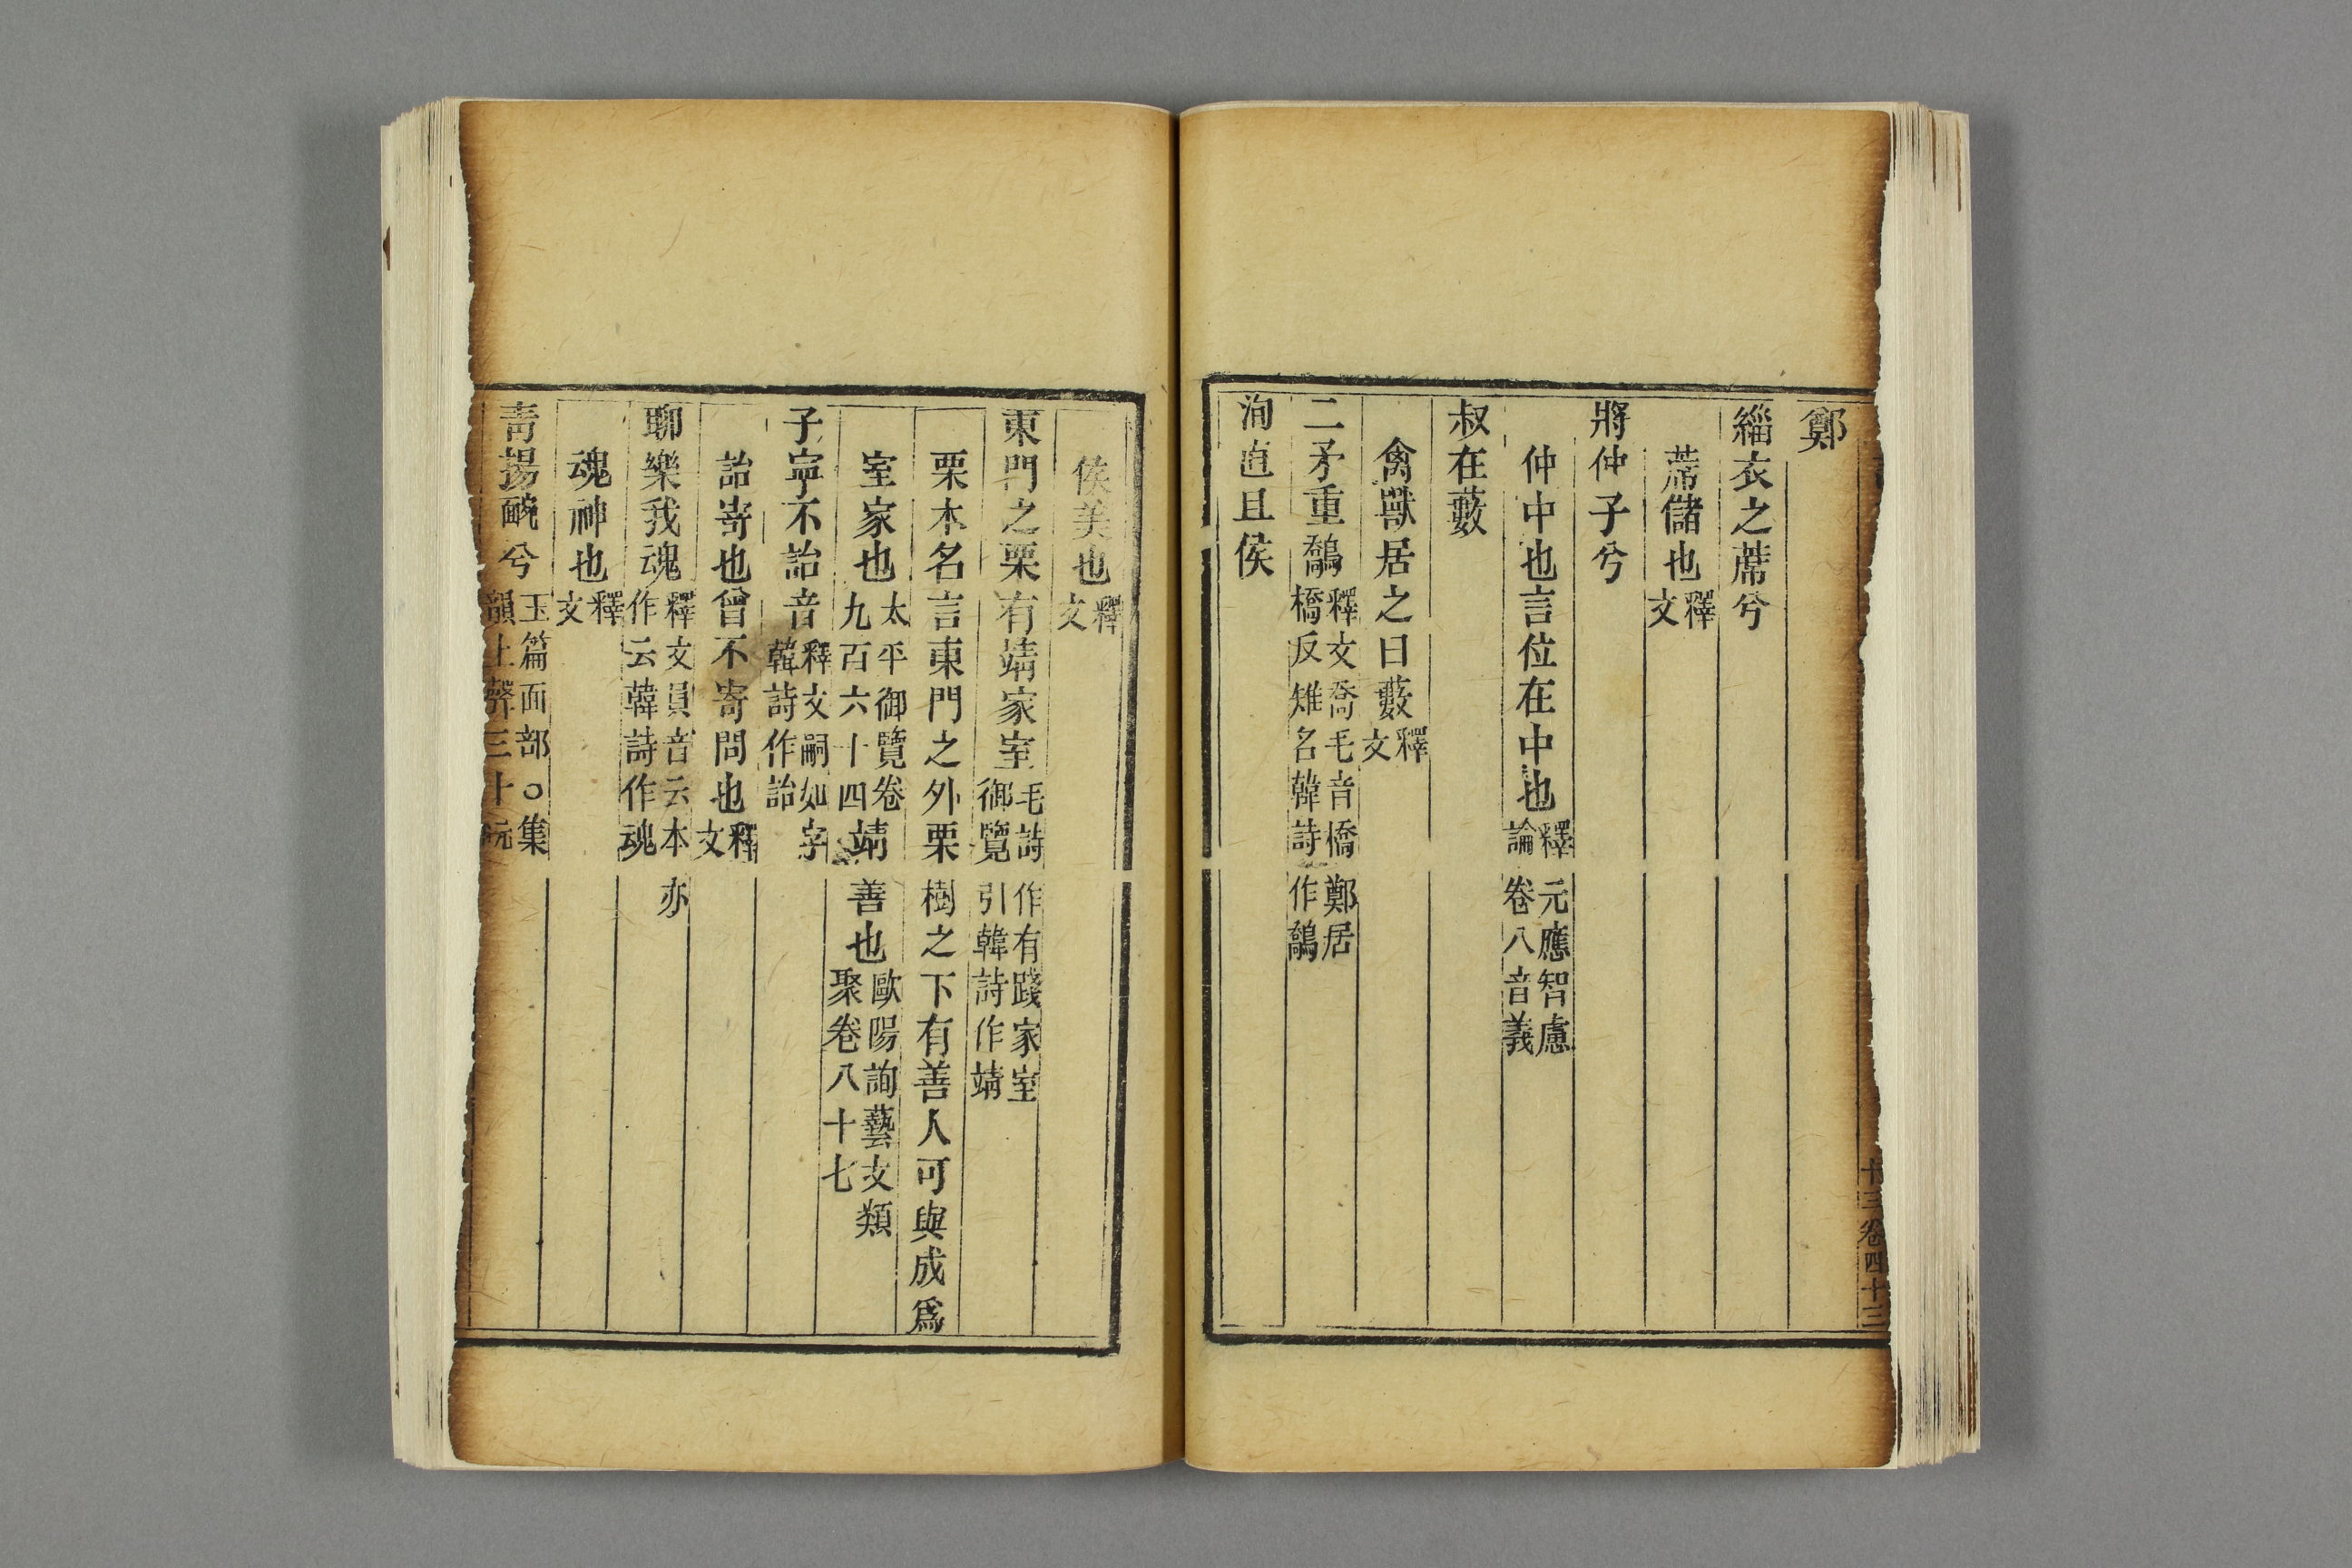 鄭
緇衣之蓆兮
蓆儲也釋文
將仲子兮
仲中也言位在中也釋元應智慮論卷八音義
叔在藪
禽獸居之曰藪釋文
二矛重鷮釋文喬毛音橋鄭居橋反雉名韓詩作鷮
洵直且侯
十三卷四十三
侯美也釋文
東門之栗有靖家室毛詩作有踐家室御覽引韓詩作靖
栗木名言東門之外栗樹之下有善人可與成爲
室家也太平御覽卷九百六十四靖善也歐陽詢藝文類聚卷八十七
子寧不詒音釋文嗣如字韓詩作詒
詒寄也曾不寄問也釋文
聊樂我魂釋文員音云本亦作云韓詩作魂
魂神也釋文
靑揚䩊兮玉篇面部○集韻上聲三十阮